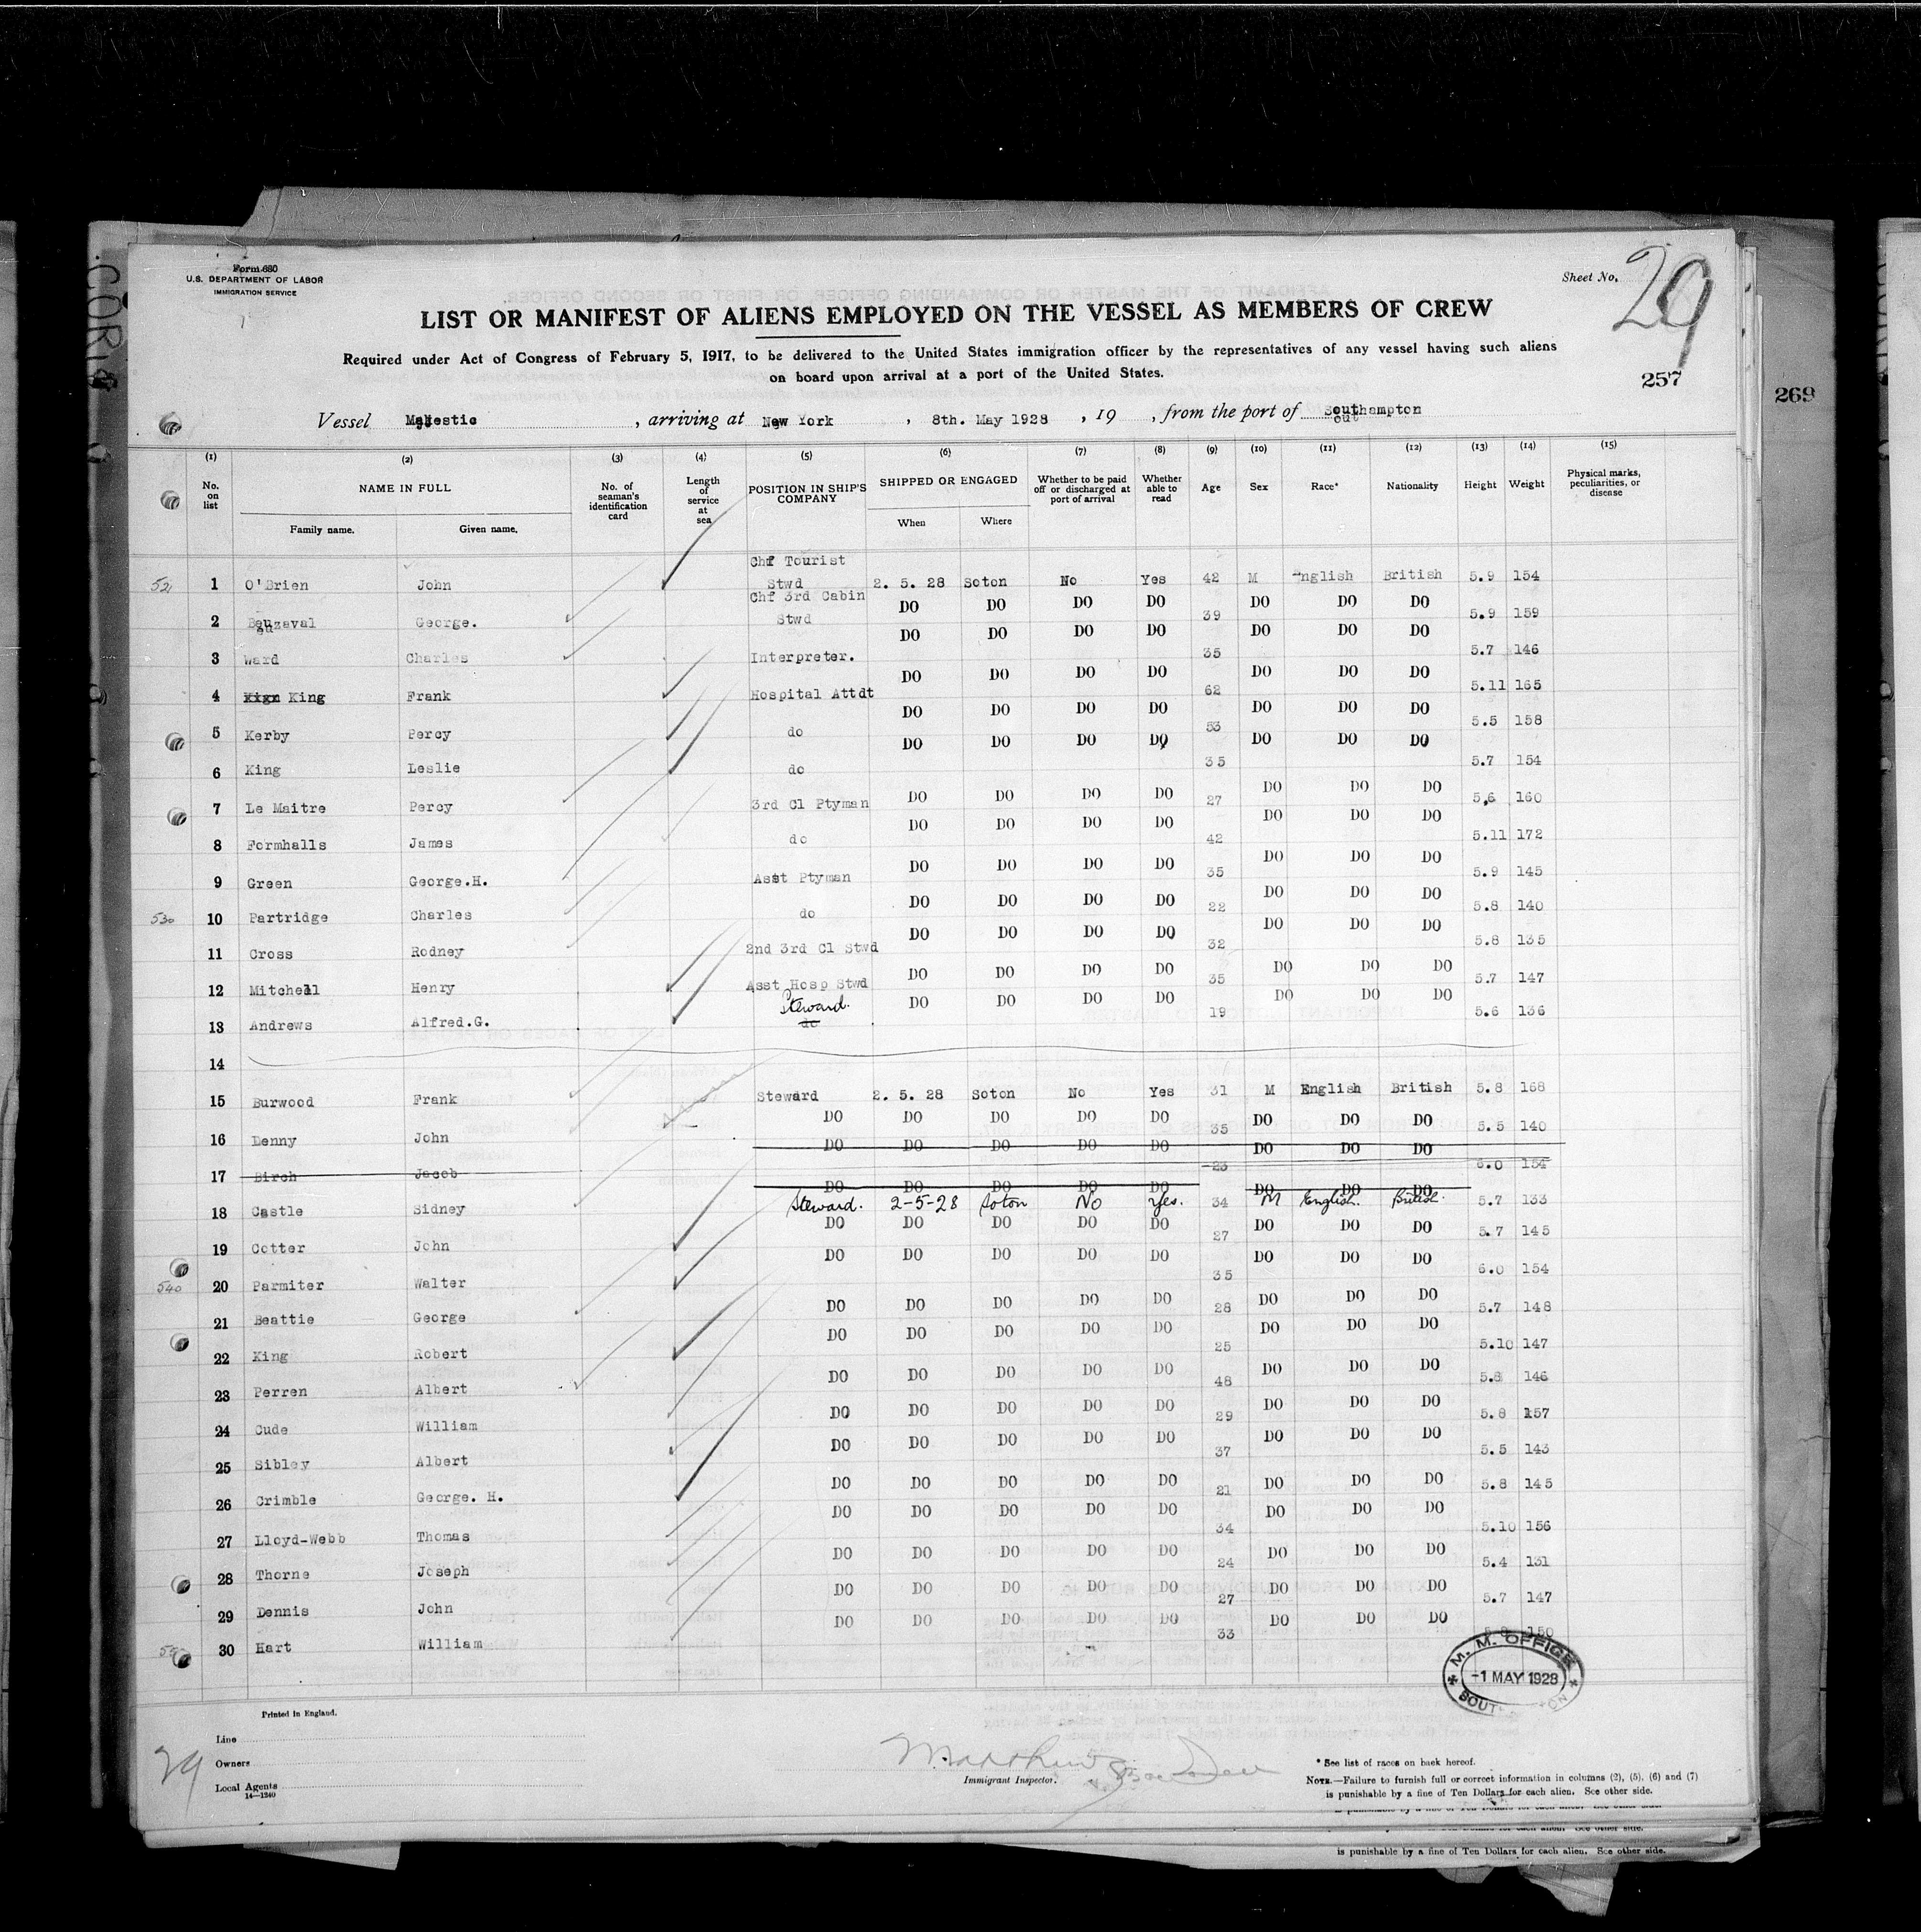 Form 680
U.S. DEPARTMENT OF LABOR
IMMIGRATION SERVICE
Sheet No. 29
LIST OR MANIFEST OF ALIENS EMPLOYED ON THE VESSEL AS MEMBERS OF CREW
Required under Act of Congress of February 5, 1917, to be delivered to the United States immigration officer by the representatives of any vessel having such aliens
on board upon arrival at a port of the United States.
257
269
Vessel Majestic , arriving at New York , 8th. May 1928 , 19 , from the port of Southampton
(1) (2) (3) (4) (5) (6) (7) (8) (9) (10) (11) (12) (13) (14) (15)
No. on list NAME IN FULL No. of seaman's identification card Length of service at sea POSITION IN SHIP'S COMPANY SHIPPED OR ENGAGED Whether to be paid off or discharged at port of arrival Whether able to read Age Sex Race* Nationality Height Weight Physical marks, peculiarities, or disease
Family name. Given name. When Where
52 1 O'Brien John Chf Tourist Stwd 2. 5. 28 Soton No Yes 42 M English British 5.9 154
2 Beuzeval George. Chf 3rd Cabin Stwd DO DO DO DO 39 DO DO DO 5.9 159
3 Ward Charles Interpreter. DO DO DO DO 35 DO DO DO 5.7 146
4 Kign King Frank Hospital Attdt DO DO DO DO 62 DO DO DO 5.11 165
5 Kerby Percy do DO DO DO DO 53 DO DO DO 5.5 158
6 King Leslie do DO DO DO DO 35 DO DO DO 5.7 154
7 Le Maitre Percy 3rd Cl Ptyman DO DO DO DO 27 DO DO DO 5.6 160
8 Formhalls James do DO DO DO DO 42 DO DO DO 5.11 172
9 Green George.H. Asst Ptyman DO DO DO DO 35 DO DO DO 5.9 145
530 10 Partridge Charles do DO DO DO DO 22 DO DO DO 5.8 140
11 Cross Rodney 2nd 3rd Cl Stwd DO DO DO DO 32 DO DO DO 5.8 135
12 Mitchell Henry Asst Hosp Stwd DO DO DO DO 35 DO DO DO 5.7 147
13 Andrews Alfred.G. Steward. do DO DO DO DO 19 DO DO DO 5.6 136
14
15 Burwood Frank Steward 2. 5. 28 Soton No Yes 31 M English British 5.8 168
16 Denny John DO DO DO DO DO 35 DO DO DO 5.5 140
17 Birch Jacob DO DO DO DO DO 23 DO DO DO 6.0 154
DO DO DO DO DO DO DO DO
18 Castle Sidney Steward. 2-5-28 Soton No Yes. 34 M English. British. 5.7 133
19 Cotter John DO DO DO DO DO 27 DO DO DO 5.7 145
540 20 Parmiter Walter DO DO DO DO DO 35 DO DO DO 6.0 154
21 Beattie George DO DO DO DO DO 28 DO DO DO 5.7 148
22 King Robert DO DO DO DO DO 25 DO DO DO 5.10 147
23 Perren Albert DO DO DO DO DO 48 DO DO DO 5.8 146
24 Cude William DO DO DO DO DO 29 DO DO DO 5.8 157
25 Sibley Albert DO DO DO DO DO 37 DO DO DO 5.5 143
26 Crimble George. H. DO DO DO DO DO 21 DO DO DO 5.8 145
27 Lloyd-Webb Thomas DO DO DO DO DO 34 DO DO DO 5.10 156
28 Thorne Joseph DO DO DO DO DO 24 DO DO DO 5.4 131
29 Dennis John DO DO DO DO DO 27 DO DO DO 5.7 147
30 Hart William DO DO DO DO DO 33 DO DO DO 5.8 150
M. M. OFFICE
-1 MAY 1928
Printed in England.
Line
Owners
Local Agents
14—1240
29
Immigrant Inspector.
* See list of races on back hereof.
NOTE.—Failure to furnish full or correct information in columns (2), (5), (6) and (7)
is punishable by a fine of Ten Dollars for each alien. See other side.
is punishable by a fine of Ten Dollars for each alien. See other side.